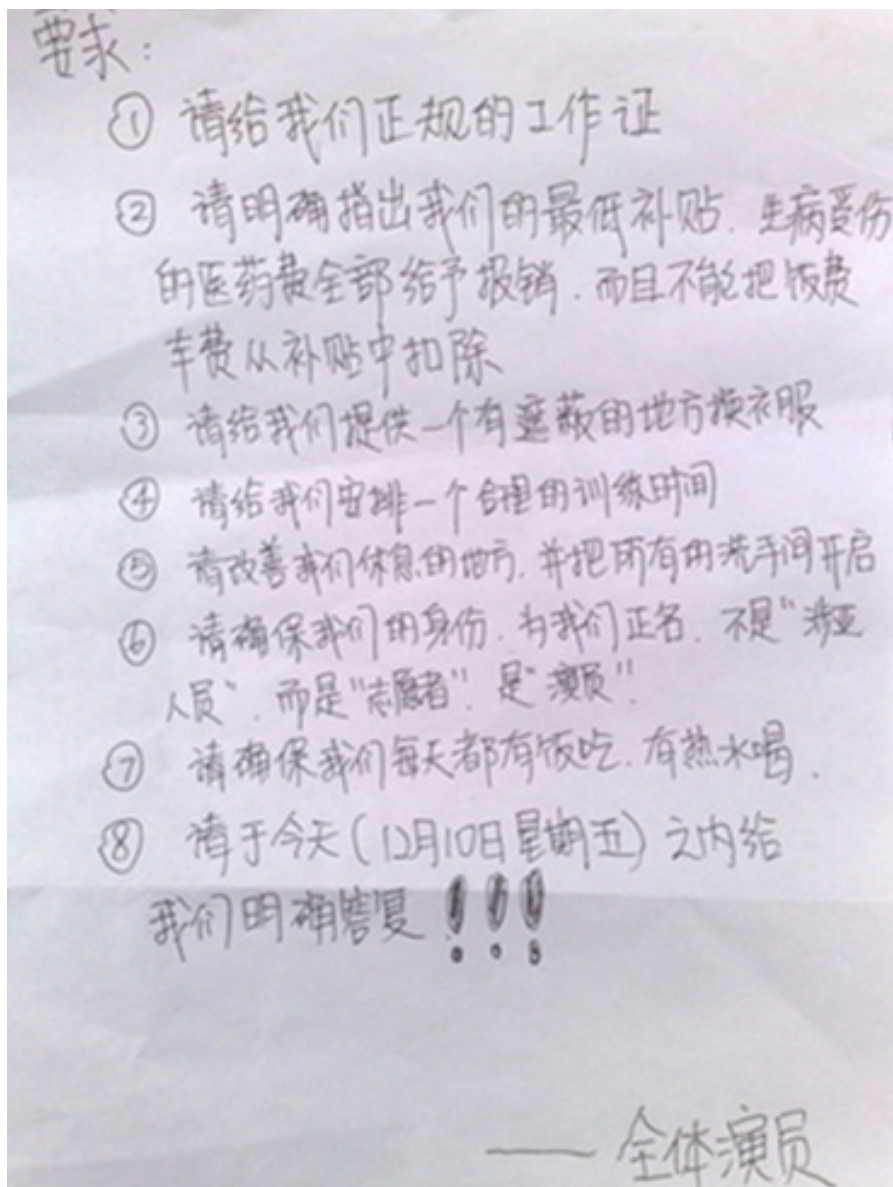 要求：
① 请给我们正规的工作证
② 请明确指出我们的最低补贴. 生病受伤
的医药费全部给予报销. 而且不能把饭费
车费从补贴中扣除
③ 请给我们提供一个有遮蔽的地方换衣服
④ 请给我们安排一个合理的训练时间
⑤ 请改善我们休息的地方. 并把所有的洗手间开启
⑥ 请确保我们的身份. 为我们正名. 不是“涉亚
人员”. 而是“志愿者”. 是“演员”.
⑦ 请确保我们每天都有饭吃. 有热水喝.
⑧ 请于今天(12月10日星期五)之内给
我们明确答复!!!
—— 全体演员